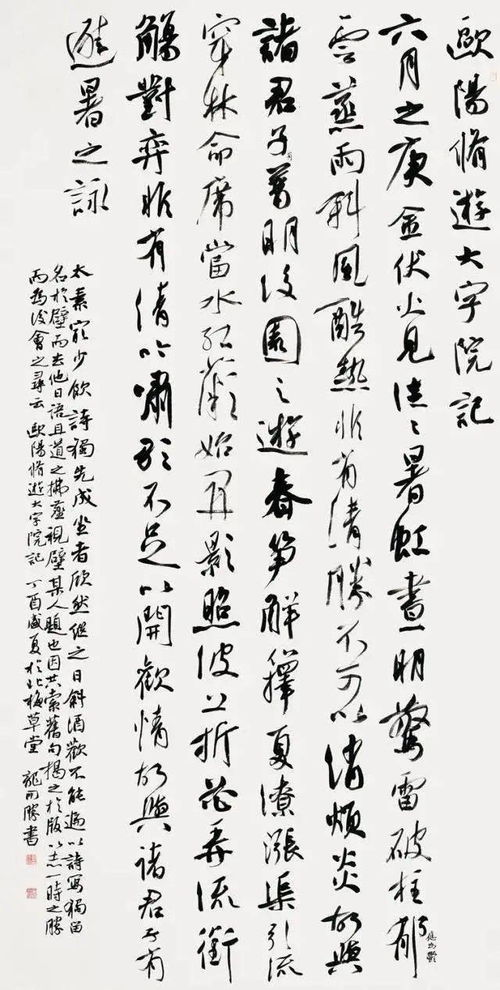 歐陽脩遊大字院記
六月之庚金伏火見往〻暑虹晝明驚雷破柱郁
應為鬱
雲蒸雨斜風酷熱非有清勝不可以消煩炎故與
諸君子普明後園之遊春笋解籜夏潦漲渠引流
穿林命席當水紅薇始開影照波上折花弄流銜
觴對弈非有清吟嘯歌不足以開歡情故與諸君子有
避暑之詠
太素最少飲詩獨先成坐者欣然繼之日斜酒歡不能遍以詩寫獨留
名於壁而去他日語且道之拂塵視壁某人題也因共索舊句揭之於版以志一時之勝
而為後會之尋云 歐陽脩遊大字院記 丁酉盛夏於北梅草堂 龍開勝書